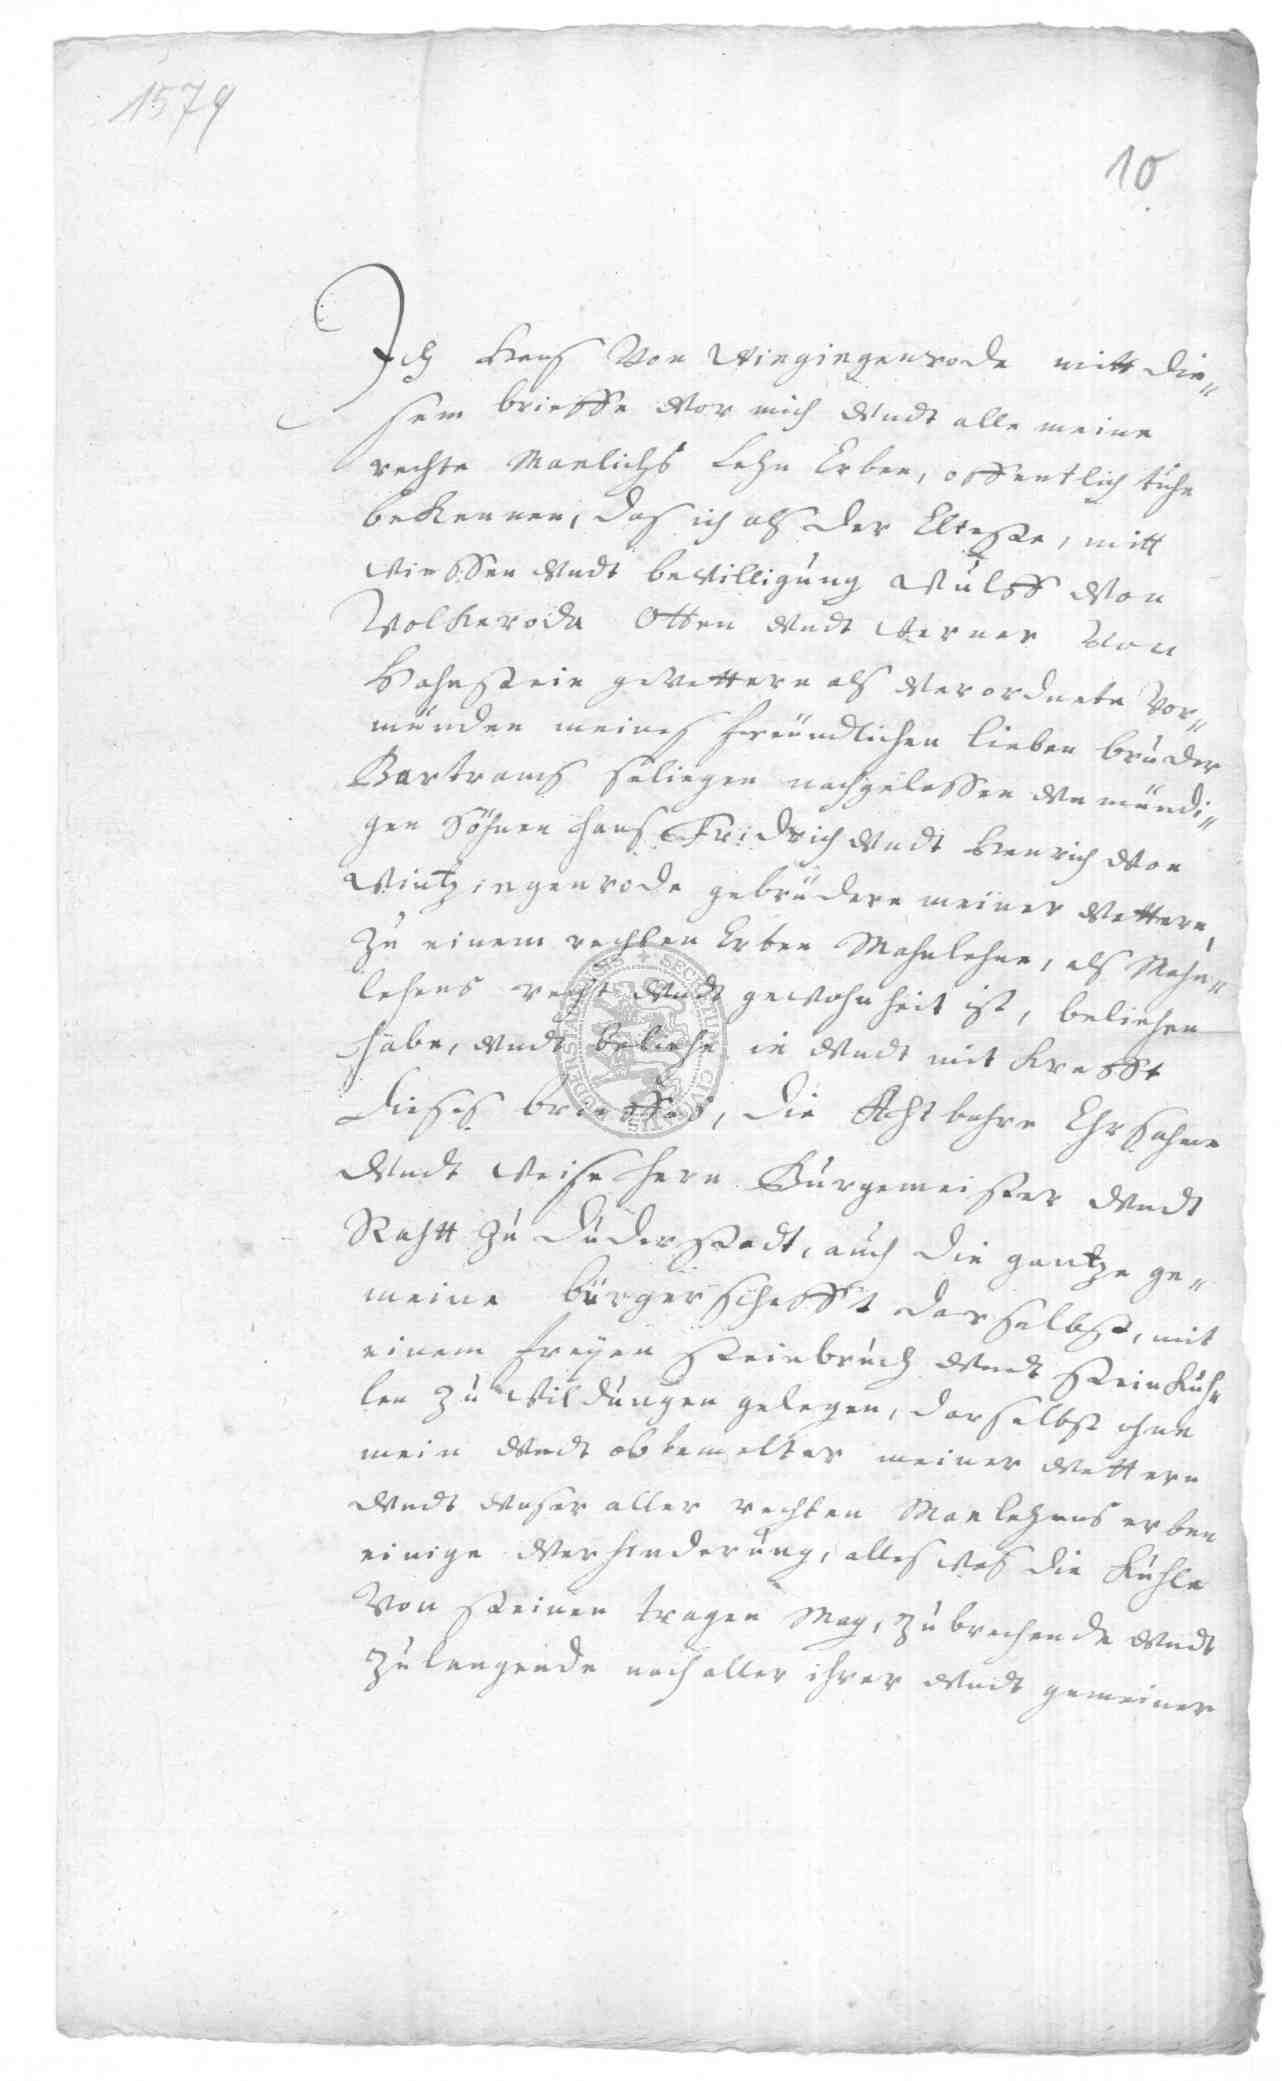 1579
10
Ich Hans Von Wingingenrode mitt die„
sem brieffe vor mich vndt alle meine
rechte Manlichs Lehn Erben, offentlich tuhe
bekennen, das ich als der Elteste, mitt
wiessen vndt bewilligung Wulff von
Volkeroda Otten vndt Werner Von
Hahnstein gevettern als verordnete Vor„
münden meines freündlichen lieben bruder
Bartrams seliegen nachgelassen vnmündi„
gen Söhnen Hans Fridrich vndt Henrich von
Wintzingenrode gebrüdern meiner vettern,
zu einem rechten Erben Mahnlehne, als Mahn„
lehens recht vndt gewohnheit ist, beliehen
habe, vndt beliehe in vndt mit krafft
dieses brieffes, die Achtbahre Ehrsahme
vndt weise Hern Burgemeister vndt
Rahtt zu Duderstadt, auch die gantze ge„
meine bürgerschafft darselbst, mit
einem freyen steinbruch vndt steinkuh„
len zu Wildungen gelegen, darselbst ohne
mein vndt obbemelter meiner vettern
vndt vnser aller rechten Manlehens erben
einige verhinderung, alles was die kuhle
Von steinen tragen Mag, zubrechende vndt
zulangende nach aller ihrer vndt gemeiner
SECRETUM CIVITATIS DUDERSTADENSIS